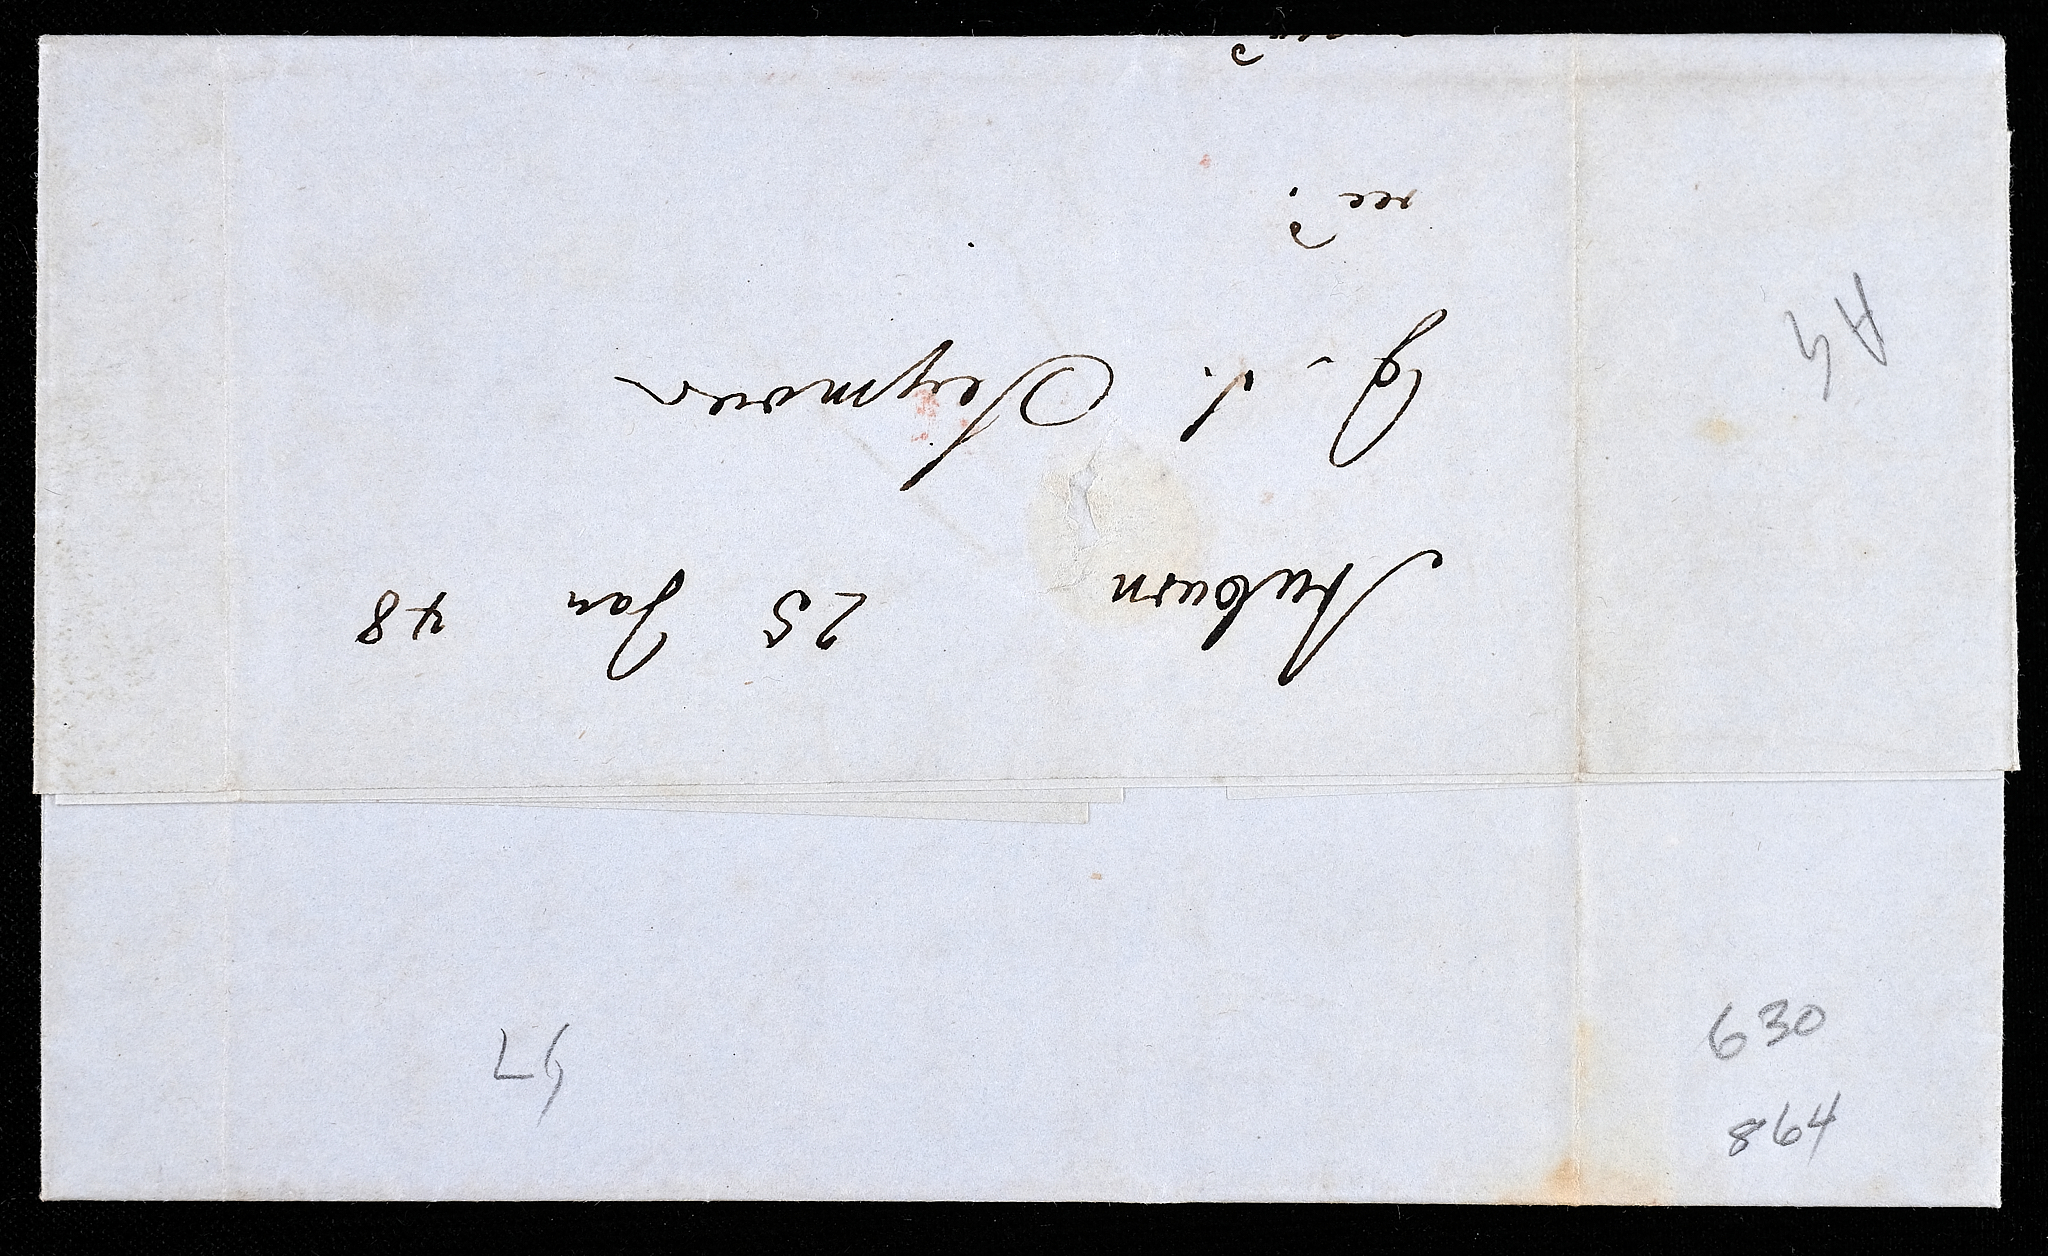 Auburn 25 Jan 48
J. S. Seymour
recd.
630
864